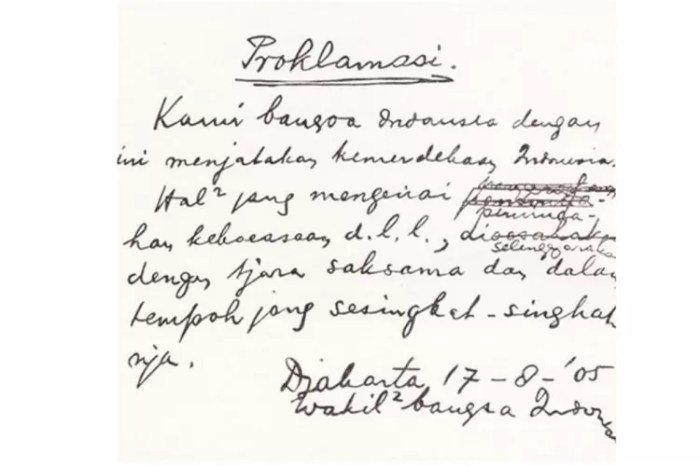 Proklamasi.
Kami bangsa Indonesia dengan
ini menjatakan kemerdekaan Indonesia.
Hal² jang mengenai
peminda-
han keboeasaan d.l.l.,
selenggarakan
dengan tjara saksama dan dalam
tempoh jang sesingkat-singkat
nja.
Djakarta 17-8-'05
Wakil² bangsa Indonesia